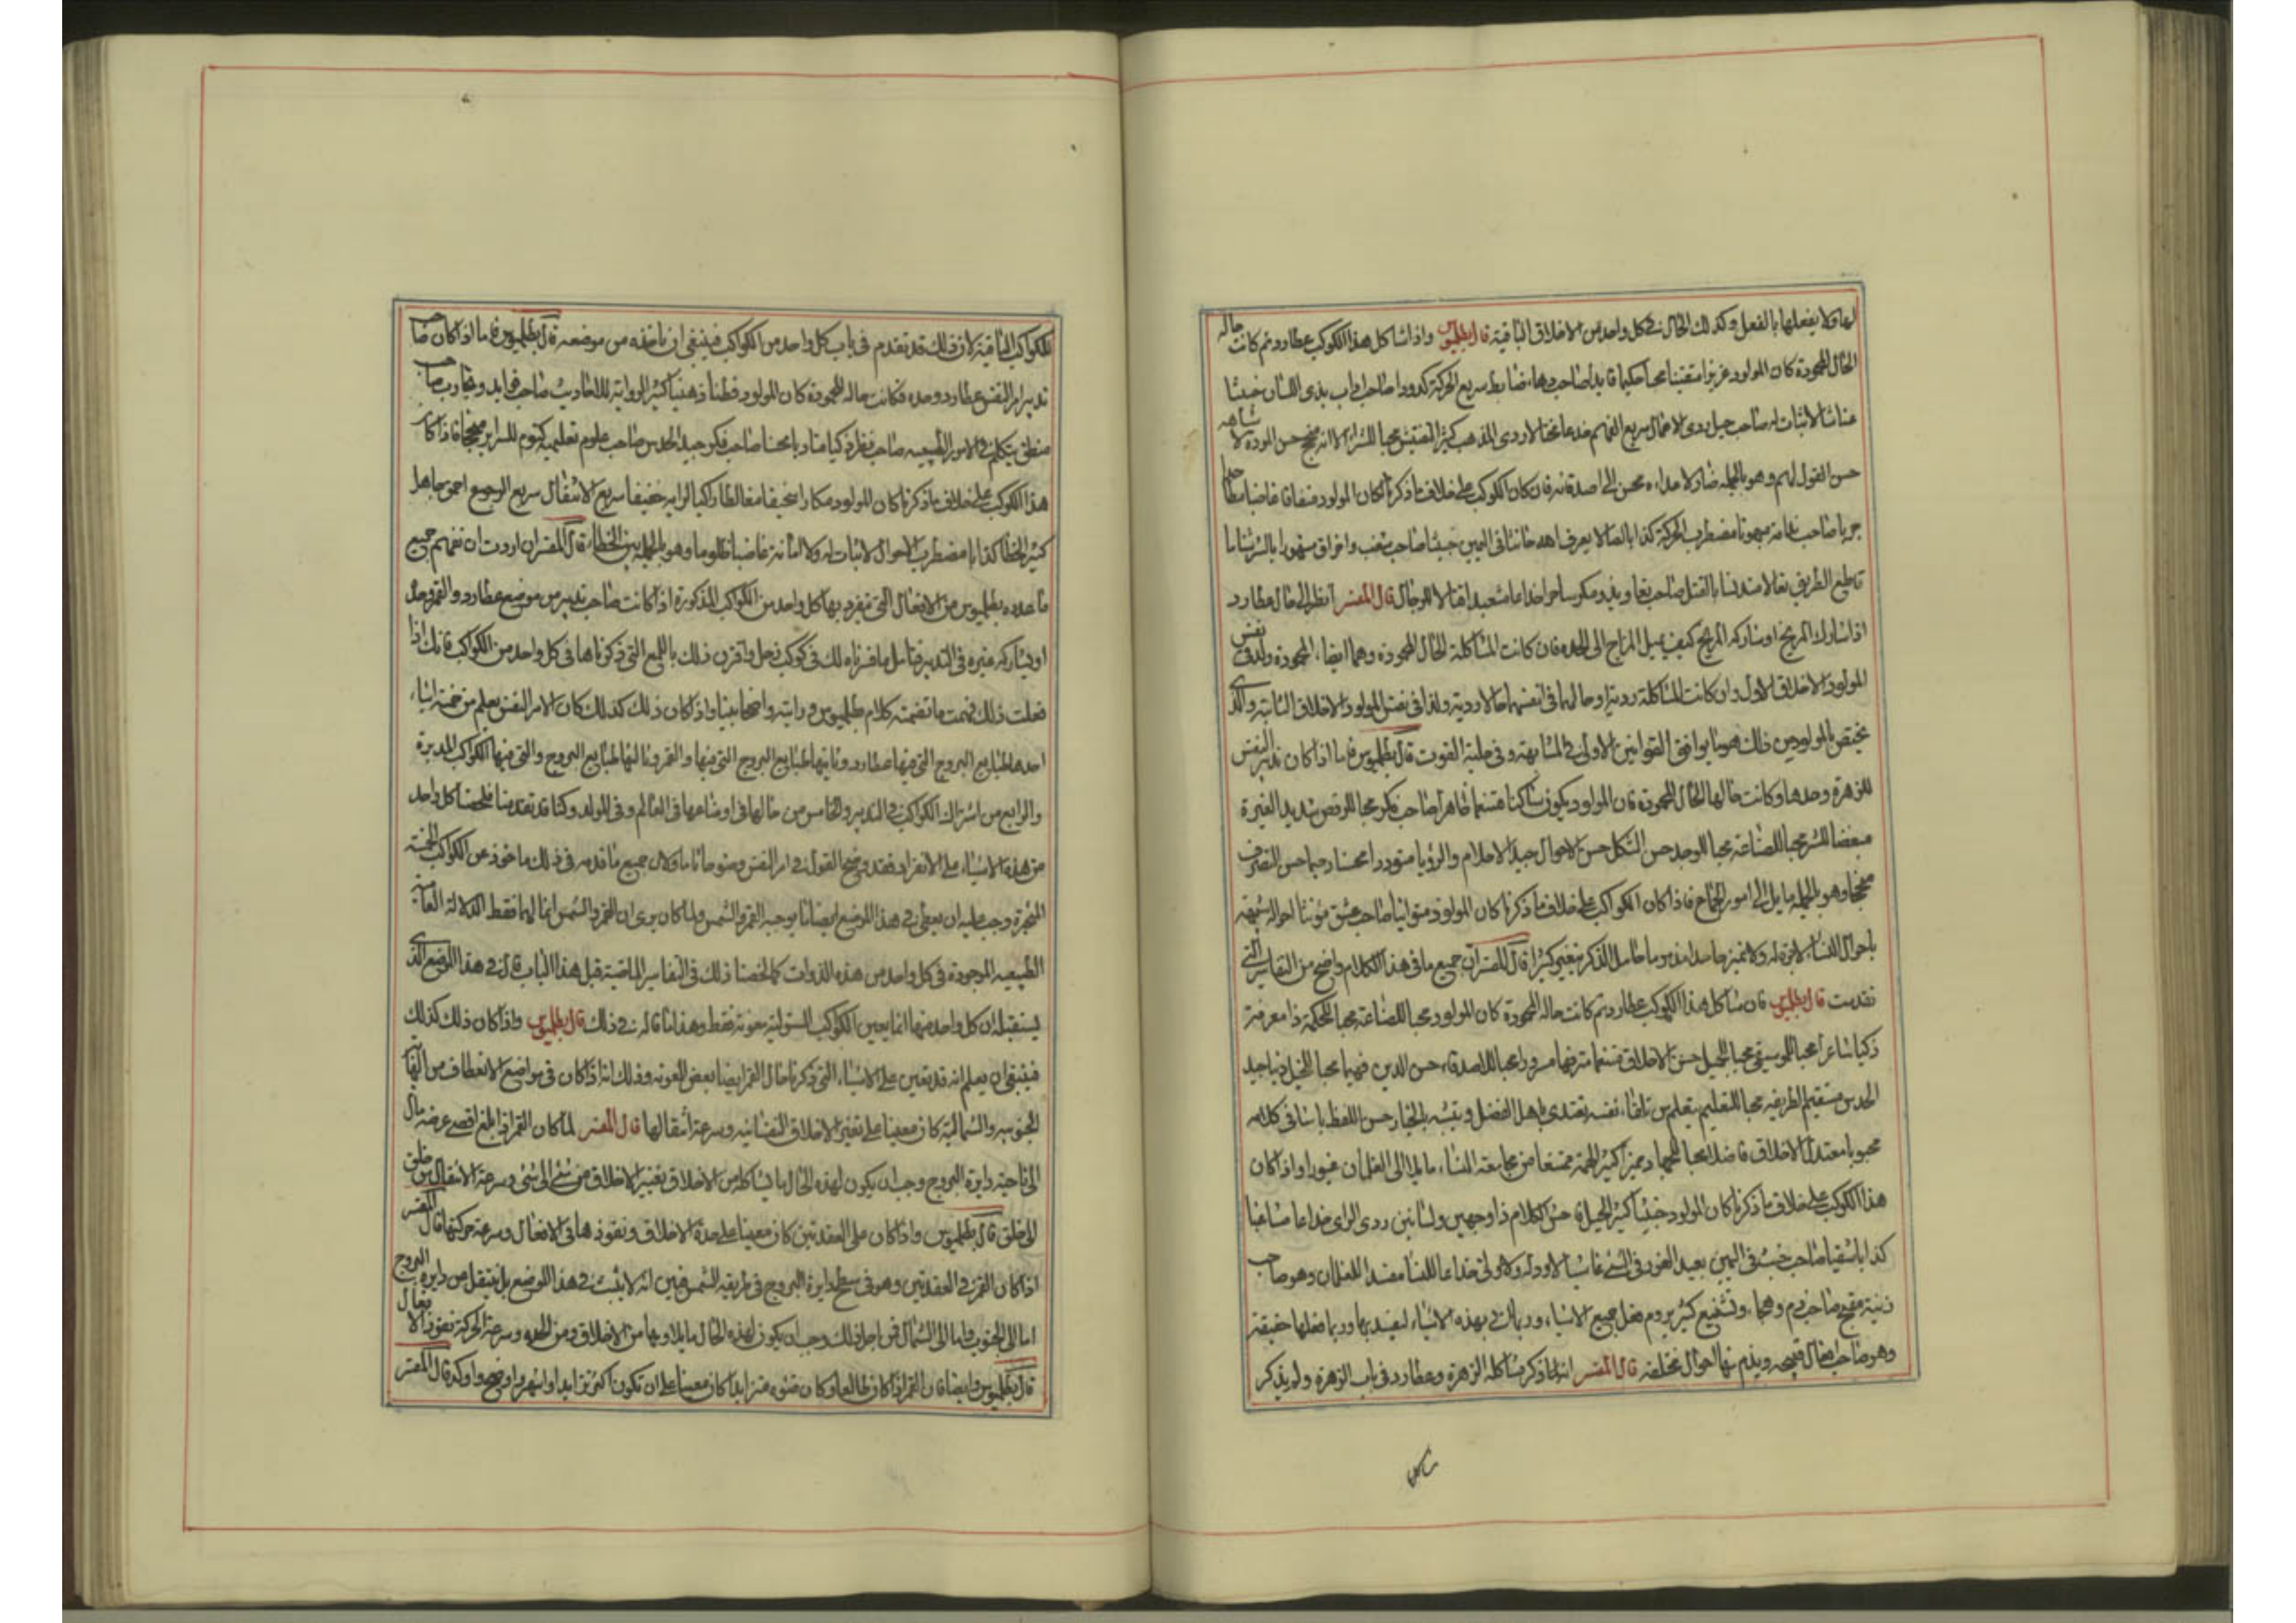 لها ولا يفعلها بالفعل وكذلك الحال في كل واحد من الاخلاق الباقية قال بطلميوس واذا شاكل هذا الكوكب عطارد ثم كانت حاله
الحال المحمودة كان المولود عزيزا متقنا محبا حكيما قايدا صاحب دهاء ضابط سريع الحركة كدودا صاحب اداب بذي اللسان خبيثا
لا ثبات له صاحب حيل ردي الاعمال سريع الفهم خداعا ردي المذهب كثير التفتيش محبا للشر الا انه منجح حسن المودة لاشباهه
حسن القبول لهم وهو بالجملة ضار لاعدائه محسن الى اصدقائه فان كان الكوكب على خلاف ما ذكرنا كان المولود منفاقا غاضبا
جريا صاحب ندامة مبهوتا مضطرب الحركة كذابا لصا لا يعرف الله خائنا في اليمين خبيثا صاحب شغب واحراق متهورا بالشر
قاطع الطريق نقالا مدنسا بالقتل صاحب ومكر ساحرا خداعا مشعبدا قتالا للرجال قال المفسر انظر الى حال عطارد
اذا شارك المريخ او شاركه المريخ كيف يميل المزاج الى الحدة فان كانت المشاكلة الحال المحمودة وهما ايضا المحمودة ولد في نفس
المولود الاخلاق الاول وان كانت المشاكلة ردية او حالهما في انفسهما حالا ردية ولدا في نفس المولود الاخلاق الثانية والذي
يختص بالمولود من ذلك هو ما يوافق القوانين الاولى في المشابهة وفي غلبة القوت قال بطلميوس فاما اذا كان تدبير النفس
للزهرة وحدها وكانت حالها الحال المحمودة فان المولود يكون ساكنا متنعما طاهرا صاحب فكر محبا للرقص شديد الغيرة
مبغضا للشر محبا للصناعة محبا للوجد حسن الشكل حسن الاحوال جيد الاحلام والرؤيا متوددا محسنا رحيما حسن التصرف
منجحا وهو بالجملة مايل الى امور الجماع فاذا كان الكوكب على خلاف ما ذكرنا كان المولود متوانيا صاحب عشق مؤنثا احواله شبيهة
باحوال النساء لا قوة له ولا تمييز حاسدا مذموما خامل الذكر بتغير كثيرا قال المفسر ان جميع ما في هذا الكلام واضح من التفاسير التي
تقدمت قال بطلميوس فان شاكل هذا الكوكب عطارد ثم كانت حاله المحمودة كان المولود محبا للصناعة محبا للحكمة ذا معرفة
ذكيا شاعرا محبا للموسيقى محبا للجميل حسن الاخلاق متنعما مترفها مسرورا محبا للاصدقاء حسن الدين فهيما محبا للحيل جيد
الحدس مستقيم الطريقة محبا للتعليم يتعلم من تلقاء نفسه يقتدي باهل الفضل ويتشبه بالخيار حسن اللفظ في كلامه
محبوبا معتدل الاخلاق فاضلا محبا للجهاد مميزا كبير الهمة ممتنعا من مجامعة النساء مايلا الى الغلمان غيورا واذا كان
هذا الكوكب على خلاف ما ذكرنا كان المولود خبيثا كثير الحيلة خشن الكلام ذا وجهين ولسانين ردي الراي خداعا مشاغبا
كذابا شقيا صاحب خبث في اليمين بعيد الغور في الشر غاشا لا ود له ولا وفى خداعا للنساء مفسدا للغلمان وهو صاحب
زينة متقبح صاحب ذم وهجاء وتشنيع كثير يروم فعل جميع الاشياء وربما في بهذه الاشياء ليفيد بها وربما فعلها حقيقة
وهو صاحب افعال قبيحة ويذم بها احوال مختلفة قال المفسر انه لما ذكر مشاكلة الزهرة وعطارد في باب الزهرة ولم يذكر
شاكل
للكواكب الباقية لان ذلك قد تقدم في باب كل واحد من الكواكب فينبغي ان ناخذه من موضعه قال بطلميوس فاما اذا كان صاحب
تدبير امر النفس عطارد وحده فكانت حاله المحمودة كان المولود فطنا ذهنيا كثير الرواية للاحاديث صاحب فوايد وتجارب صاحب
منطق يتكلم في الامور الطبيعيه صاحب نظر ذكيا متادبا محسنا صاحب فكر جيد الحدس صاحب علوم تعليمية كتوم للسراير منجحا فاذا كان
هذا الكوكب على خلاف ما ذكرنا كان المولود مكارا سخيفا مغالطا راكبا لرايه خفيفا سريع الانتقال سريع الرجوع احمق جاهل
كثير الخطا كذابا مضطرب الاحوال لا ثبات له ولا امانة غاضبا ظلوما وهو بالجملة بين الخطاء قال المفسر ان اردت ان تفهم جميع
ما عدده بطلميوس من الافعال التي ينفرد بها كل واحد من الكواكب المذكورة اذا كانت صاحب تدبير من موضع عطارد والقمر وحده
او يشاركه غيره في التدبير فتامل ما فسرناه لك في كوكب زحل واقرن ذلك باللمع التي ذكرناها في كل واحد من الكواكب فانك اذا
فعلت ذلك فهمت ما تضمنته كلام بطلميوس ورايته واضحا بينا واذ كان ذلك كذلك كان الامر النفس يعلم من خمسة اشياء
احدها طبايع البروج التي فيها عطارد وثانيها طبايع البروج التي فيها القمر وثالثها طبايع البروج والتي فيها الكواكب المدبرة
والرابع من اشتراك الكواكب في التدبير والخامس من حالها في اوضاعها في العالم وفي المولد وكنا قد تقدمنا فلخصنا كل واحد
من هذه الاشياء على الانفراد فقد وضح القول في امر النفس وضوحا تاما ولان جميع ما قدمه في ذلك ماخوذ عن الكواكب الخمسة
المتحيرة وجب عليه ان يعطي في هذا الموضع ايضا ما يوجبه القمر والشمس ولما كان يرى ان القمر والشمس انما لهما فقط الدلالة العامية
الطبيعيه الموجودة في كل واحد من هذه الذوات كما لخصنا ذلك في التفاسير الماضية قبل هذا الباب قال في هذا الموضع الذي
يستقبله ان كل واحد منهما انما يعين الكواكب المستولية معونة فقط وهذا ما قاله في ذلك قال بطلميوس واذا كان ذلك كذلك
فينبغي ان يعلم انه قد يعين على الاشياء التي ذكرنا حال القمر ايضا بعض المعونة وذلك انه اذا كان في مواضع الانعطاف من النهاية
الجنوبية والشمالية كان معينا على تغيير الاخلاق النفسانية وسرعة انتقالها قال المفسر لما كان القمر اذا بلغ اقصى عرضه مال
الى ناحية دايرة البروج وجب ان يكون لهذه الحال ما يشاكله من الاخلاق تغيير الاخلاق من شي الى شي وسرعة الانتقال من خلق
الى خلق قال بطلميوس واذا كان على العقدتين كان معينا على حدة الاخلاق ونفوذها في الافعال وسرعة حركتها قال المفسر
اذا كان القمر في العقدتين وهو في سطح دايرة البروج في طريقه الشمس فبين انه لا يثبت في هذا الموضع بل ينتقل من دايرة البروج
اما الى الجنوب واما الى الشمال فمن اجل ذلك وجب ان يكون لهذه الحال ما يلاومها من الاخلاق ومن الحده وسرعة الحركة نفوذ الافعال
قال بطلميوس وايضا فان القمر اذا كان طالعا وكان ضوءه متزايدا كان معينا على ان تكون اكثر تزايدا واشهر واوضح واوكد قال المفسر